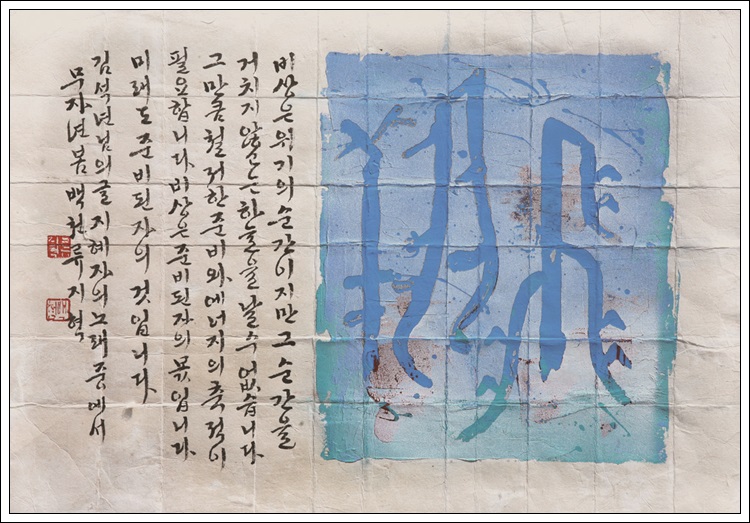 비상은 위기의 순간이지만 그 순간을
거치지 않고는 하늘을 날 수 없습니다.
그 만큼 철저한 준비와 에너지의 축적이
필요합니다. 비상은 준비된 자의 몫입니다.
미래도 준비된 자의 것입니다.
김석년님의 글 지혜자의 노래 중에서
무자년 봄 백천 류지혁